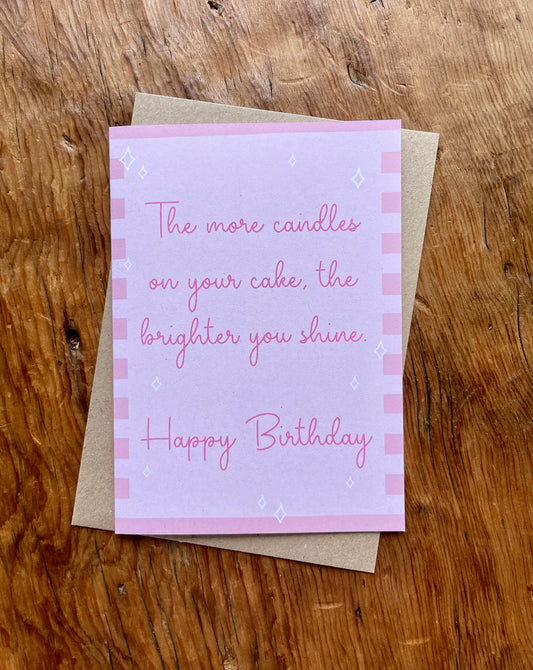 The more candles
on your cake, the
brighter you shine.
Happy Birthday